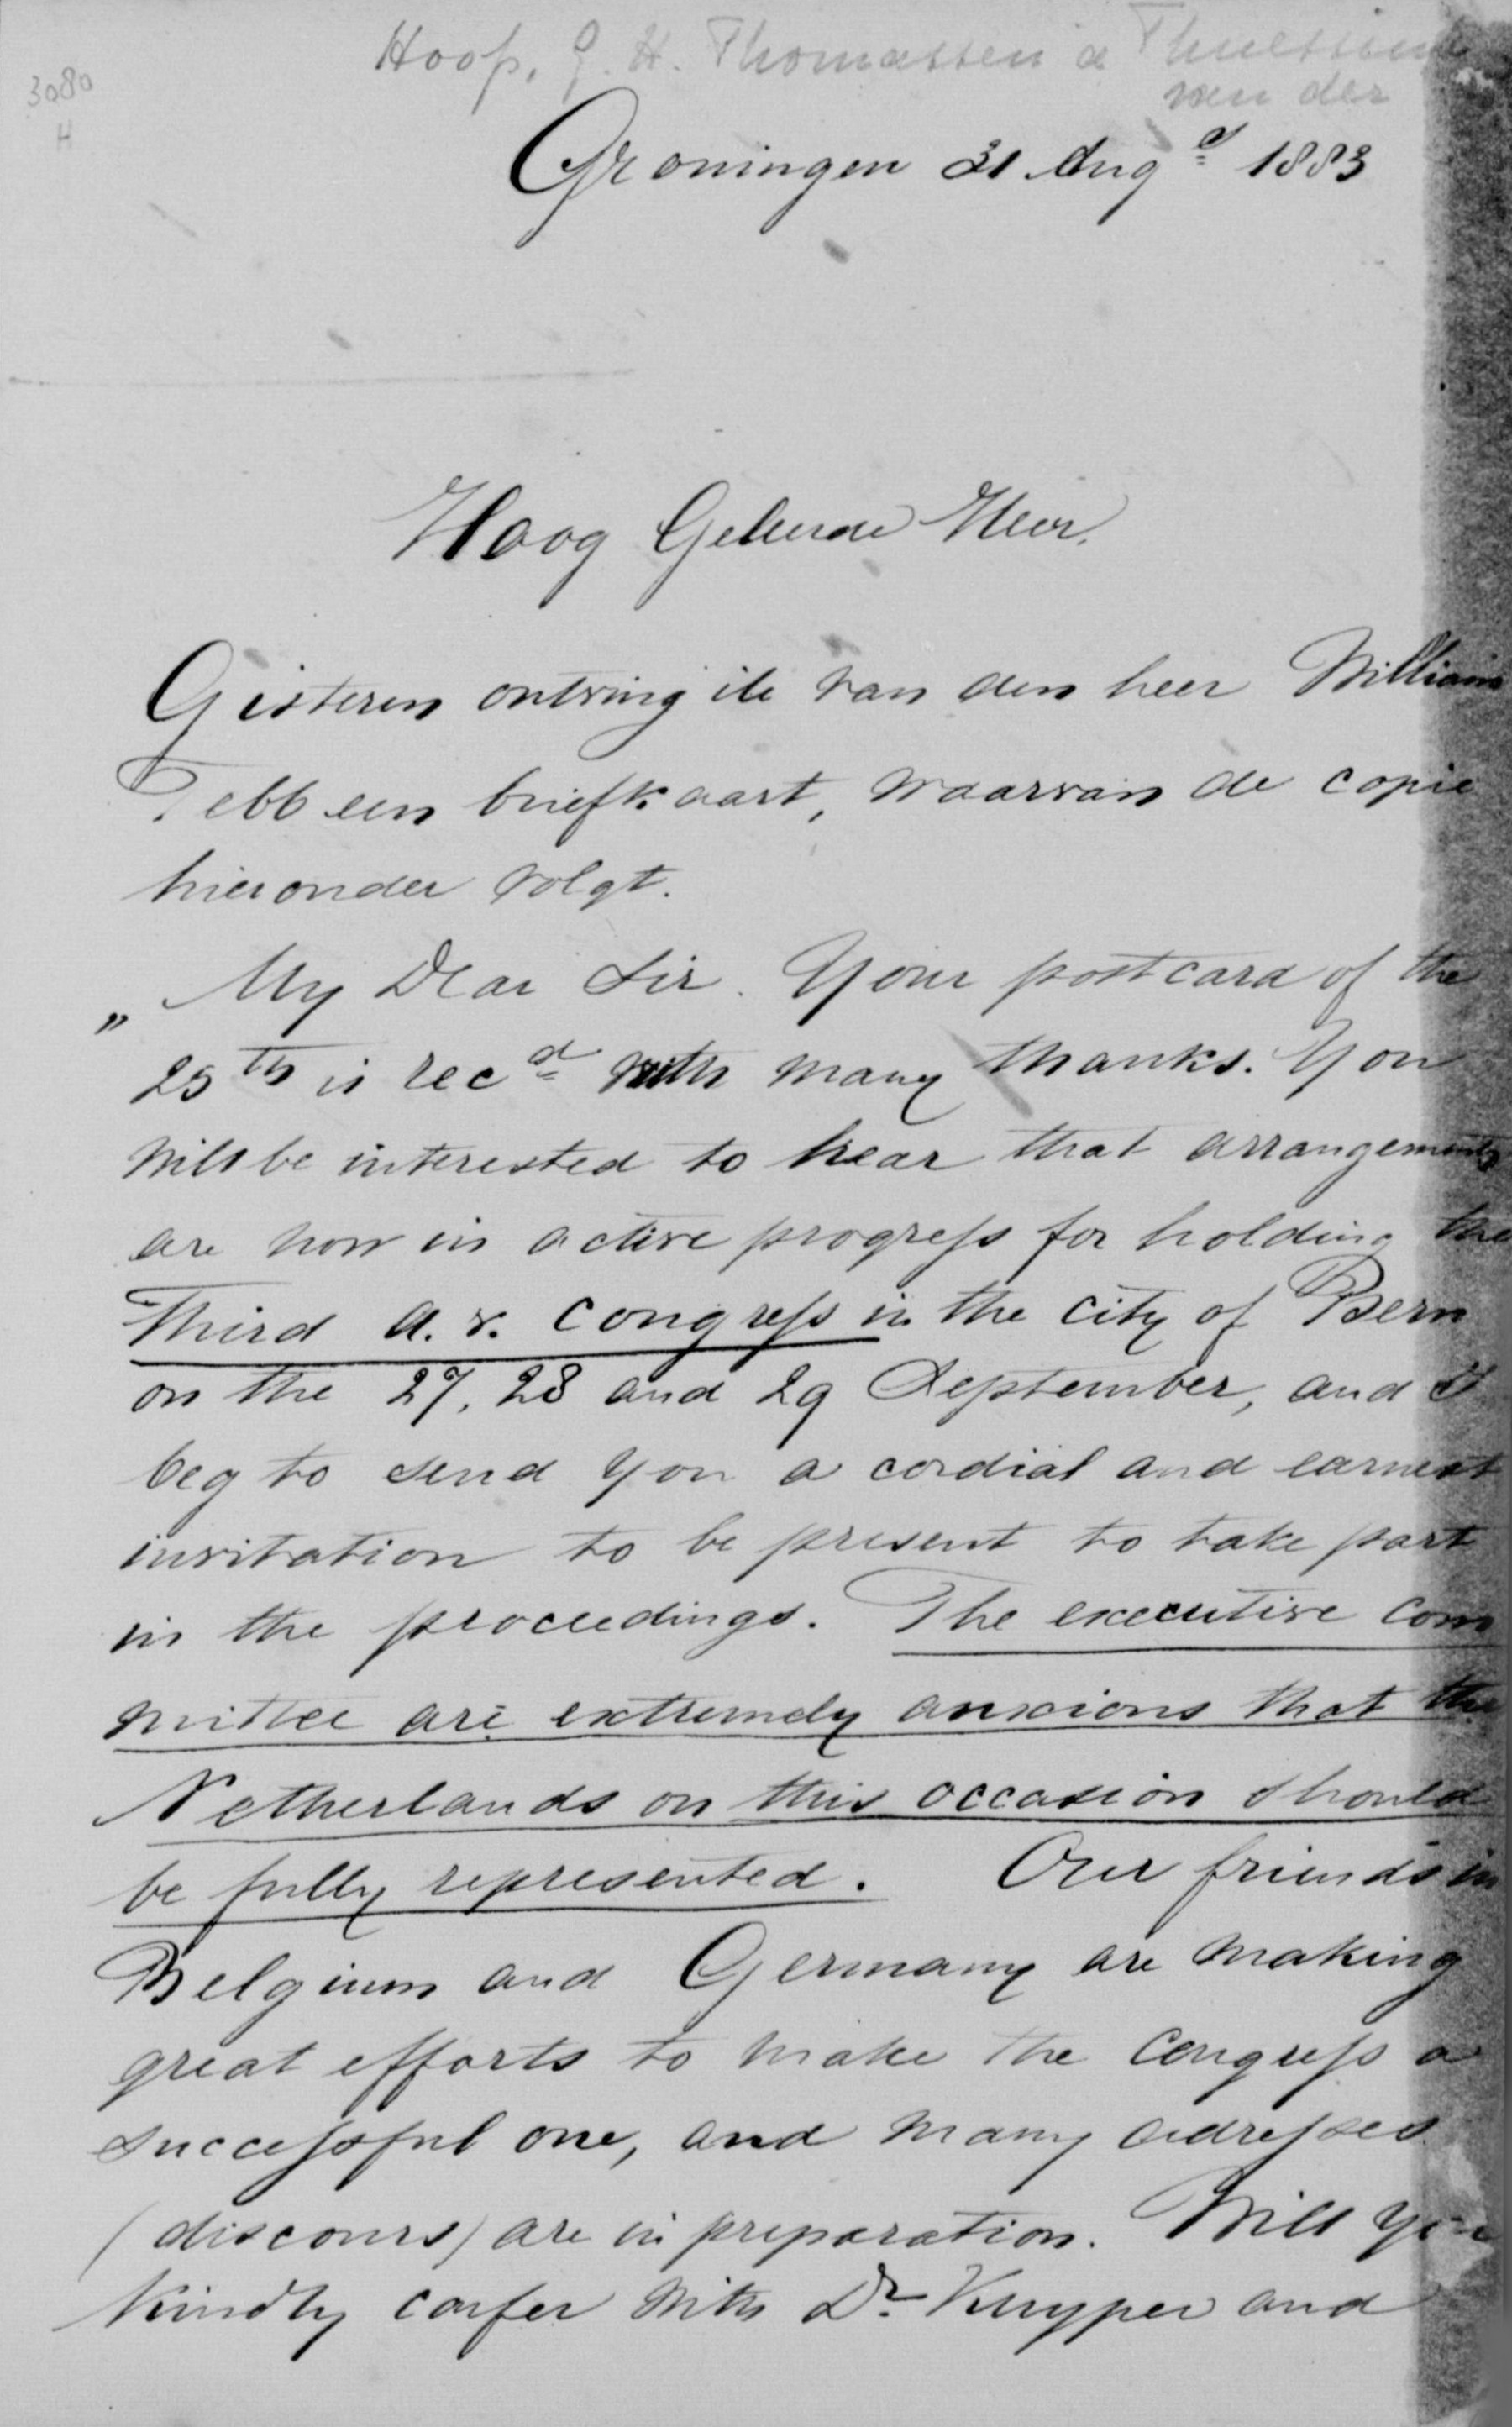 Hoop, G. H. Thomassen à Thuessink
van der
3080
H
Groningen 31 Aug.d 1883
Hoog Geleerde Heer.
Gisteren ontving ik van den heer William
Tebb een briefkaart, waarvan de copie
hieronder volgt.
„ My Dear Sir. Your postcard of the
25th is recd with many thanks. You
will be interested to hear that arrangements
are now in active progress for holding the
Third a. v. congress in the city of Bern
on the 27, 28 and 29 September, and I
beg to send you a cordial and earnest
invitation to be present to take part
in the proceedings. The executive com
mittee are extremely anxious that the
Netherlands on this occasion should
be fully represented. Our friends in
Belgium and Germany are making
great efforts to make the congress a
successful one, and many adresses
(discours) are in preparation. Will you
kindly confer with Dr. Kuyper and